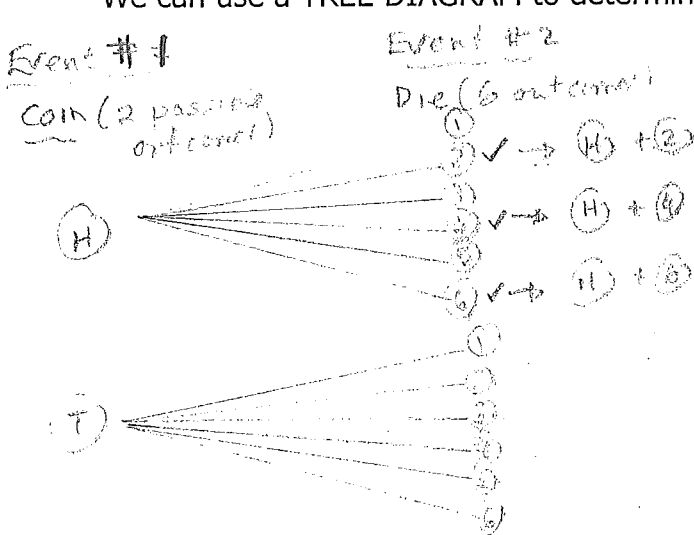 We can use a TREE DIAGRAM to determin
Event #1
Event #2
Coin (2 possible outcomes)
Die (6 outcomes)
H
1
2 ✓ → H + 2
3
4 ✓ → H + 4
5
6 ✓ → H + 6
T
1
2
3
4
5
6